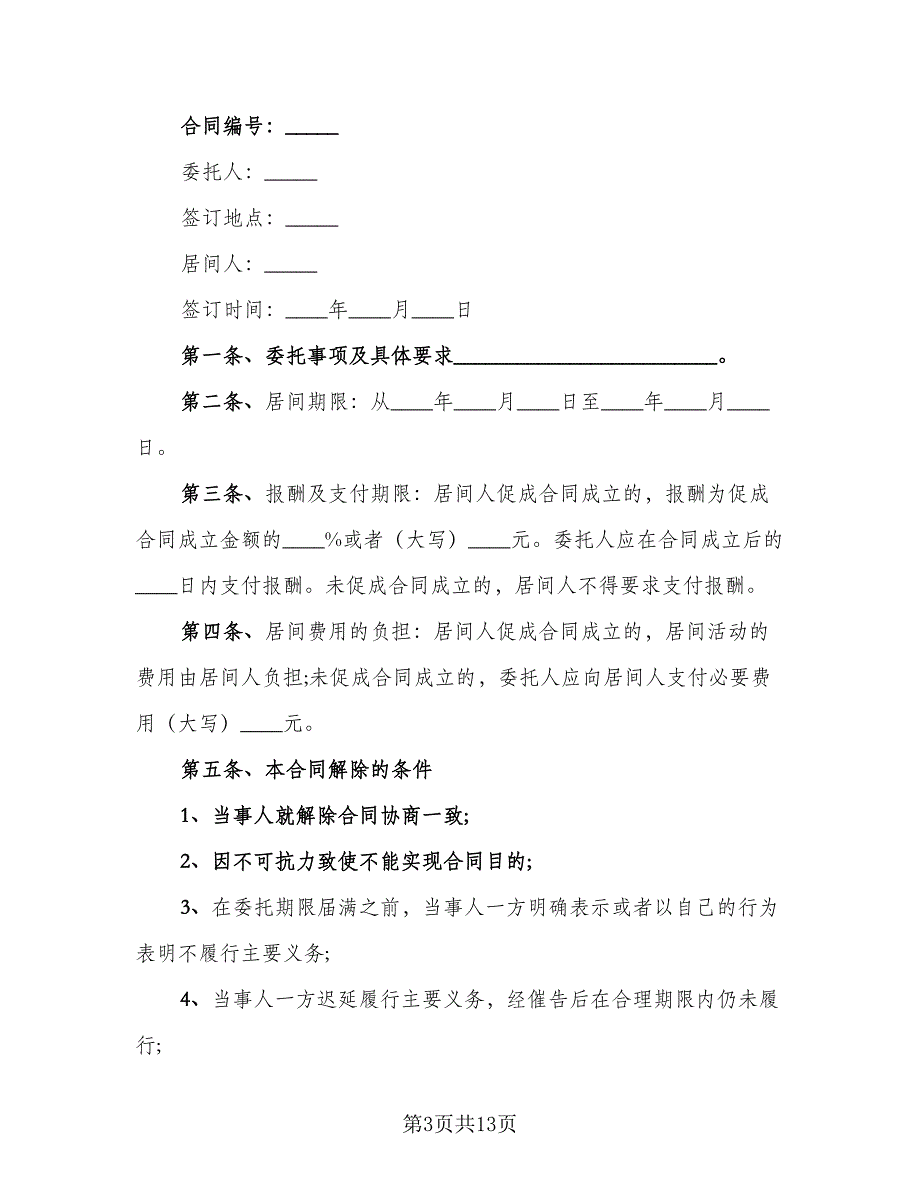 合同编号：_____
委托人：_____
签订地点：_____
居间人：_____
签订时间：____年____月____日
第一条、委托事项及具体要求_________________________。
第二条、居间期限：从____年____月____日至____年____月____
日。
第三条、报酬及支付期限：居间人促成合同成立的，报酬为促成
合同成立金额的____%或者（大写）____元。委托人应在合同成立后的
____日内支付报酬。未促成合同成立的，居间人不得要求支付报酬。
第四条、居间费用的负担：居间人促成合同成立的，居间活动的
费用由居间人负担;未促成合同成立的，委托人应向居间人支付必要费
用（大写）____元。
第五条、本合同解除的条件
1、当事人就解除合同协商一致;
2、因不可抗力致使不能实现合同目的;
3、在委托期限届满之前，当事人一方明确表示或者以自己的行为
表明不履行主要义务;
4、当事人一方迟延履行主要义务，经催告后在合理期限内仍未履
行;
第3页共13页